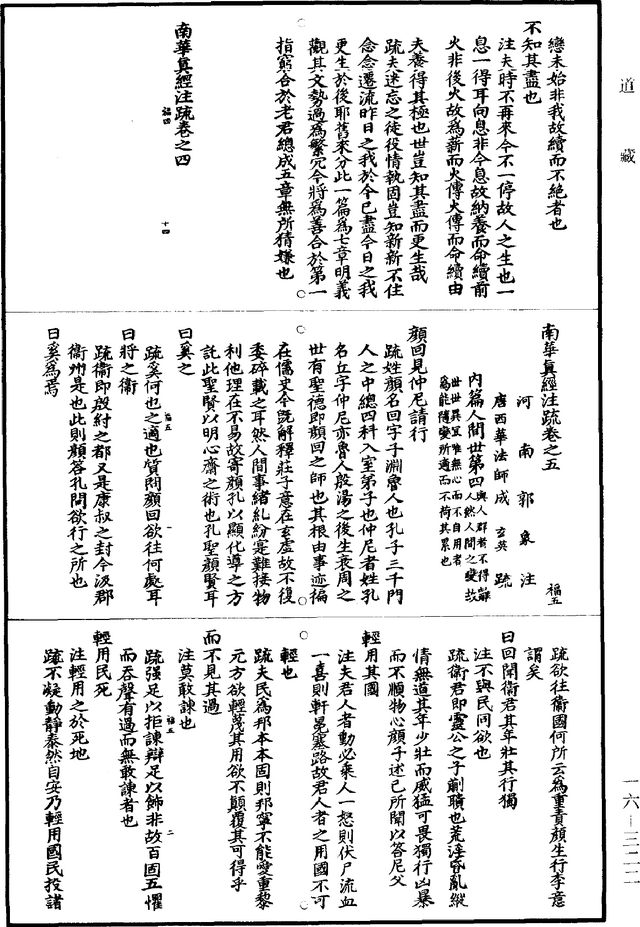 道藏
戀未始非我故續而不絕者也
不知其盡也
注夫時不再來今不一停故人之生也一
息一得耳向息非今息故納養而命續前
火非後火故為薪而火傳火傳而命續由
夫養得其極也世豈知其盡而更生哉
疏夫迷忘之徒役情執固豈知新新不住
念念遷流昨日之我於今已盡今日之我
更生於後耶舊來分此一篇為七章明義
觀其文勢過為繁冗今將為善合於第一
指窮合於老君總成五章無所猜嫌也
南華真經注疏卷之四
福四
十四
南華真經注疏卷之五
福五
河南郭象注
唐西華法師成玄英疏
內篇人間世第四
與人群者不得離人然人間之變故
世世異宜唯無心而不自用者
為能隨變所適而不荷其累也
顏回見仲尼請行
疏姓顏名回字子淵魯人也孔子三千門
人之中總四科入室弟子也仲尼者姓孔
名丘字仲尼亦魯人殷湯之後生衰周之
世有聖德即顏回之師也其根由事迹徧
在儒史今既解釋莊子意在玄虛故不復
委碎載之耳然人間事緒糺紛寔難接物
利他理在不易故寄顏孔以顯化導之方
託此聖賢以明心齋之術也孔聖顏賢耳
曰奚之
疏奚何也之適也質問顏回欲往何處耳
福五
一
曰將之衛
疏衛即殷紂之都又是康叔之封今汲郡
衛州是也此則顏答孔問欲行之所也
曰奚為焉
疏欲往衛國何所云為重責顏生行李意
謂矣
曰回聞衛君其年壯其行獨
注不與民同欲也
疏衛君即靈公之子蒯聵也荒淫昏亂縱
情無道其年少壯而威猛可畏獨行凶暴
而不順物心顏子述己所聞以答尼父
輕用其國
注夫君人者動必乘人一怒則伏尸流血
一喜則軒冕塞路故君人者之用國不可
輕也
疏夫民為邦本本固則邦寧不能愛重黎
元方欲輕蔑其用欲不顛覆其可得乎
而不見其過
注莫敢諫也
疏强足以拒諫辯足以飾非故百固五懼
福五
二
而吞聲有過而無敢諫者也
輕用民死
注輕用之於死地
疏不凝動靜泰然自安乃輕用國民投諸
一六—三二二